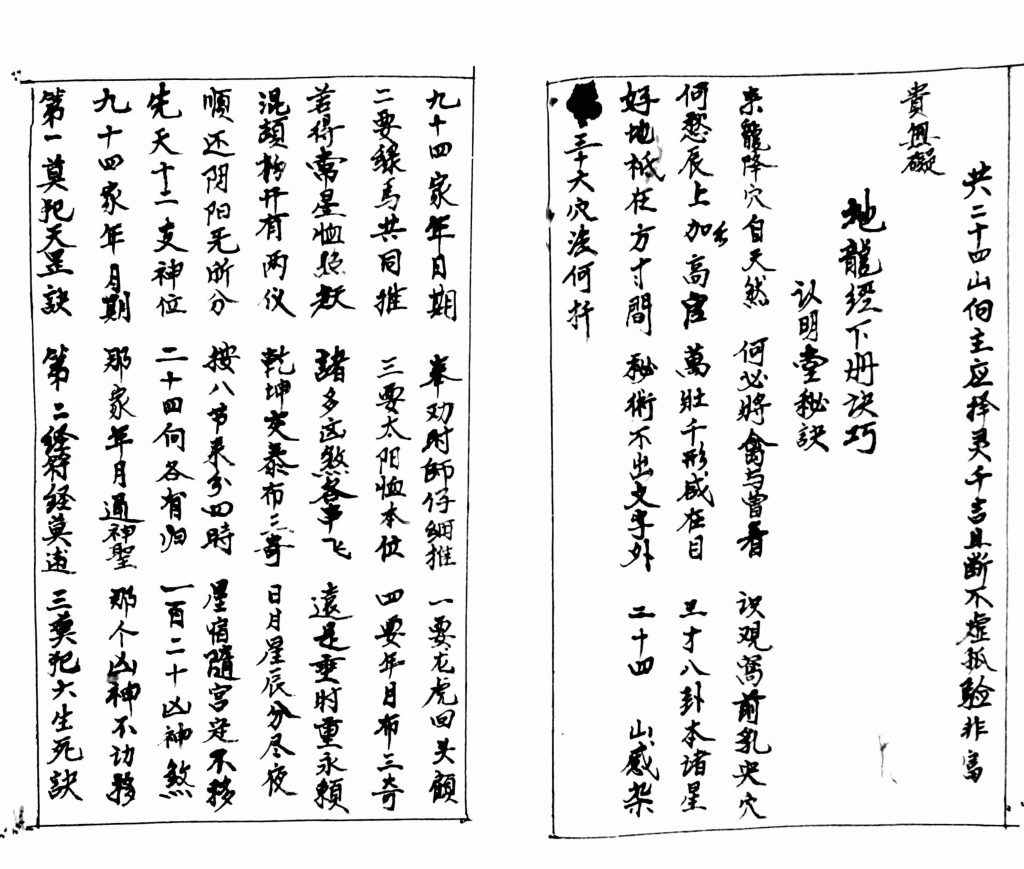 共二十四山向主应择灵千吉且断不虚孤验非富
貴無礙
地龍經下册诀巧
认明堂秘訣
来龍降穴自天然 何必將禽与曾看 识观窩前乳突穴
何愁辰上加高官 萬壯千形咸在目 三才八卦本诸星
好地柢在方寸間 秘術不出文字外 二十四 山感柴
三十六穴法何扦
九十四家年月期 奉劝时師仔細推 一要龙虎回头顧
二要禄马共同推 三要太阳恤本位 四要年月布三奇
若得常星恤照 諸多凶煞各串飞 遠是垂时重永賴
混沌初开有两仪 乾坤交泰布三奇 日月星辰分尽夜
順还阴阳无所分 按八节来分四時 星宿隨宫定不移
先天十二支神位 二十四向各有归 一百二十凶神煞
九十四家年月期 那家年月通神聖 那个凶神不切移
第一莫犯天罡訣 第二经符经莫逺 三莫犯大生死訣